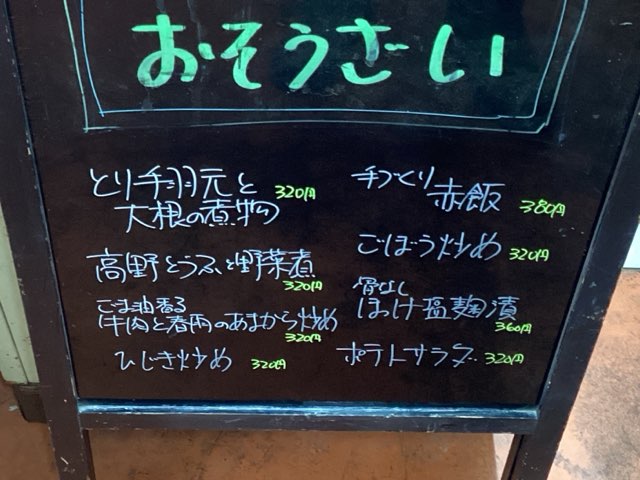 おそうざい
とり手羽元と 320円
大根の煮物
高野とうふと野菜煮
320円
ごま油香る
牛肉と春雨のあまから炒め
320円
ひじき炒め 320円
手づくり
赤飯 380円
ごぼう炒め 320円
骨なし
ほっけ塩麹漬
360円
ポテトサラダ 320円